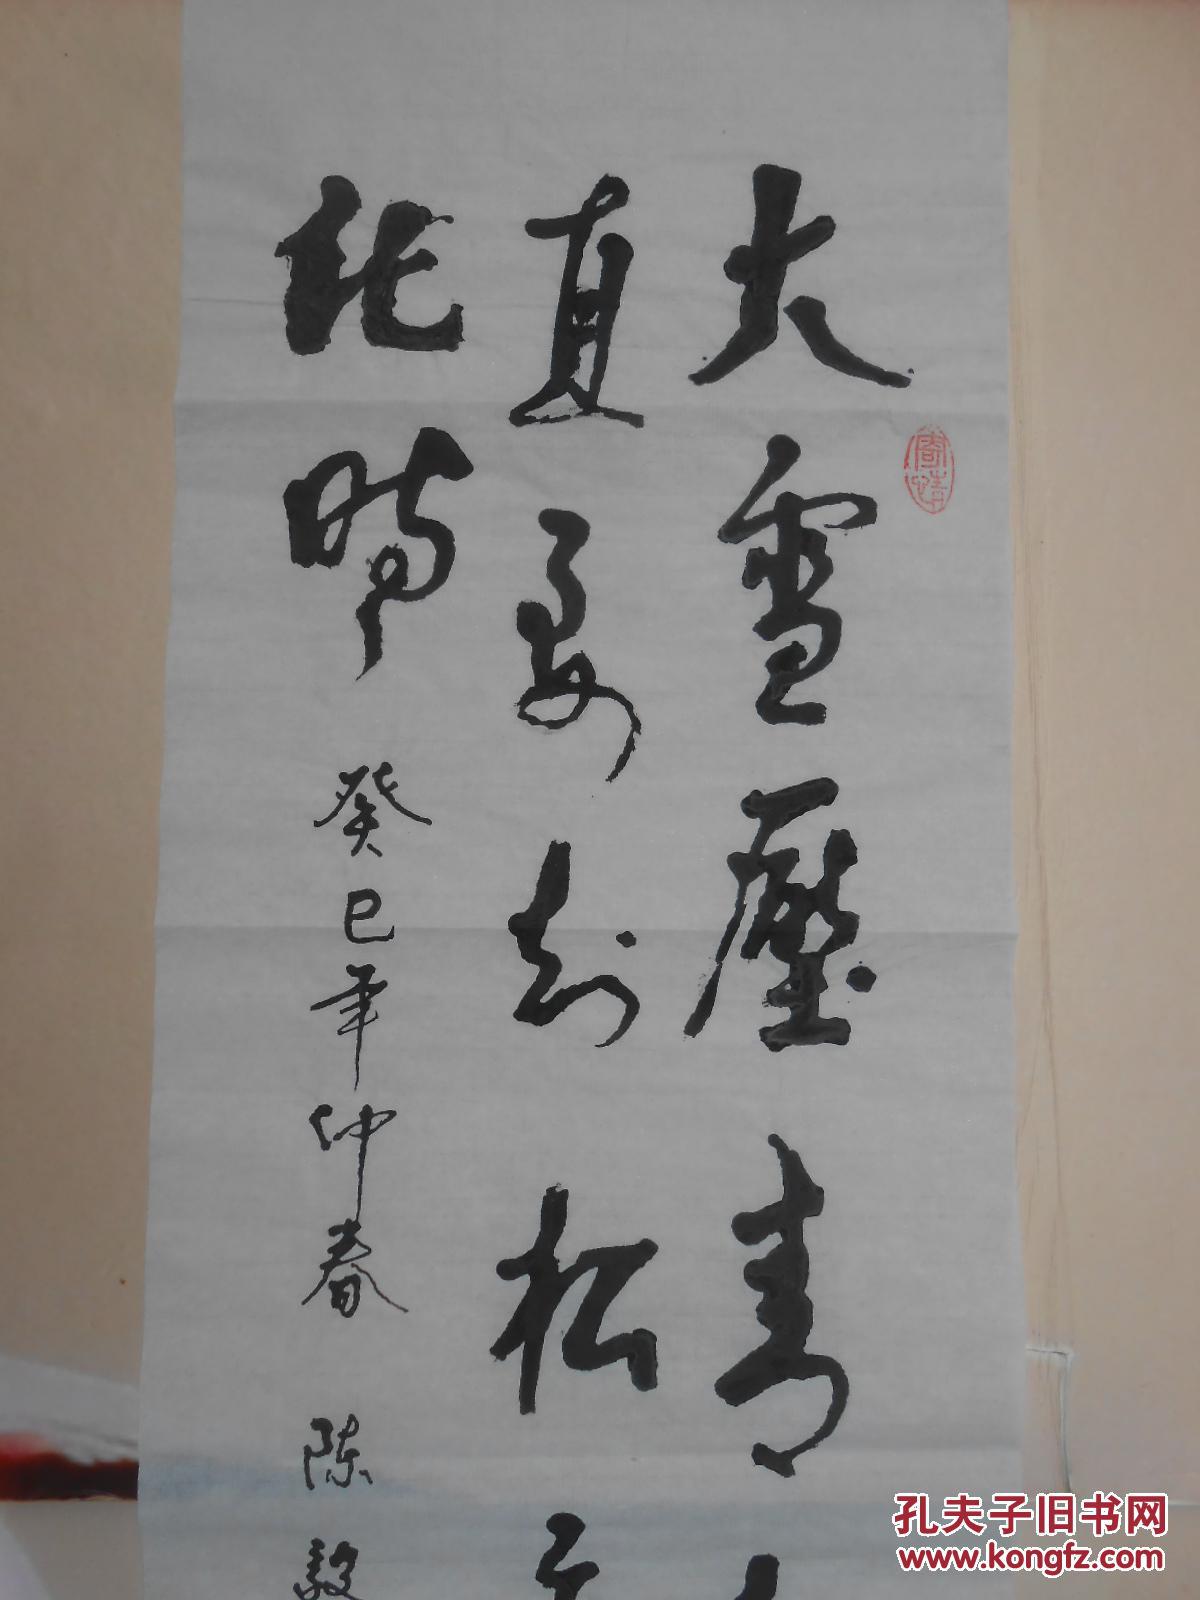 大雪壓青
直要知松
化時
癸巳年仲春 陈毅
寄情
孔夫子旧书网
www.kongfz.com